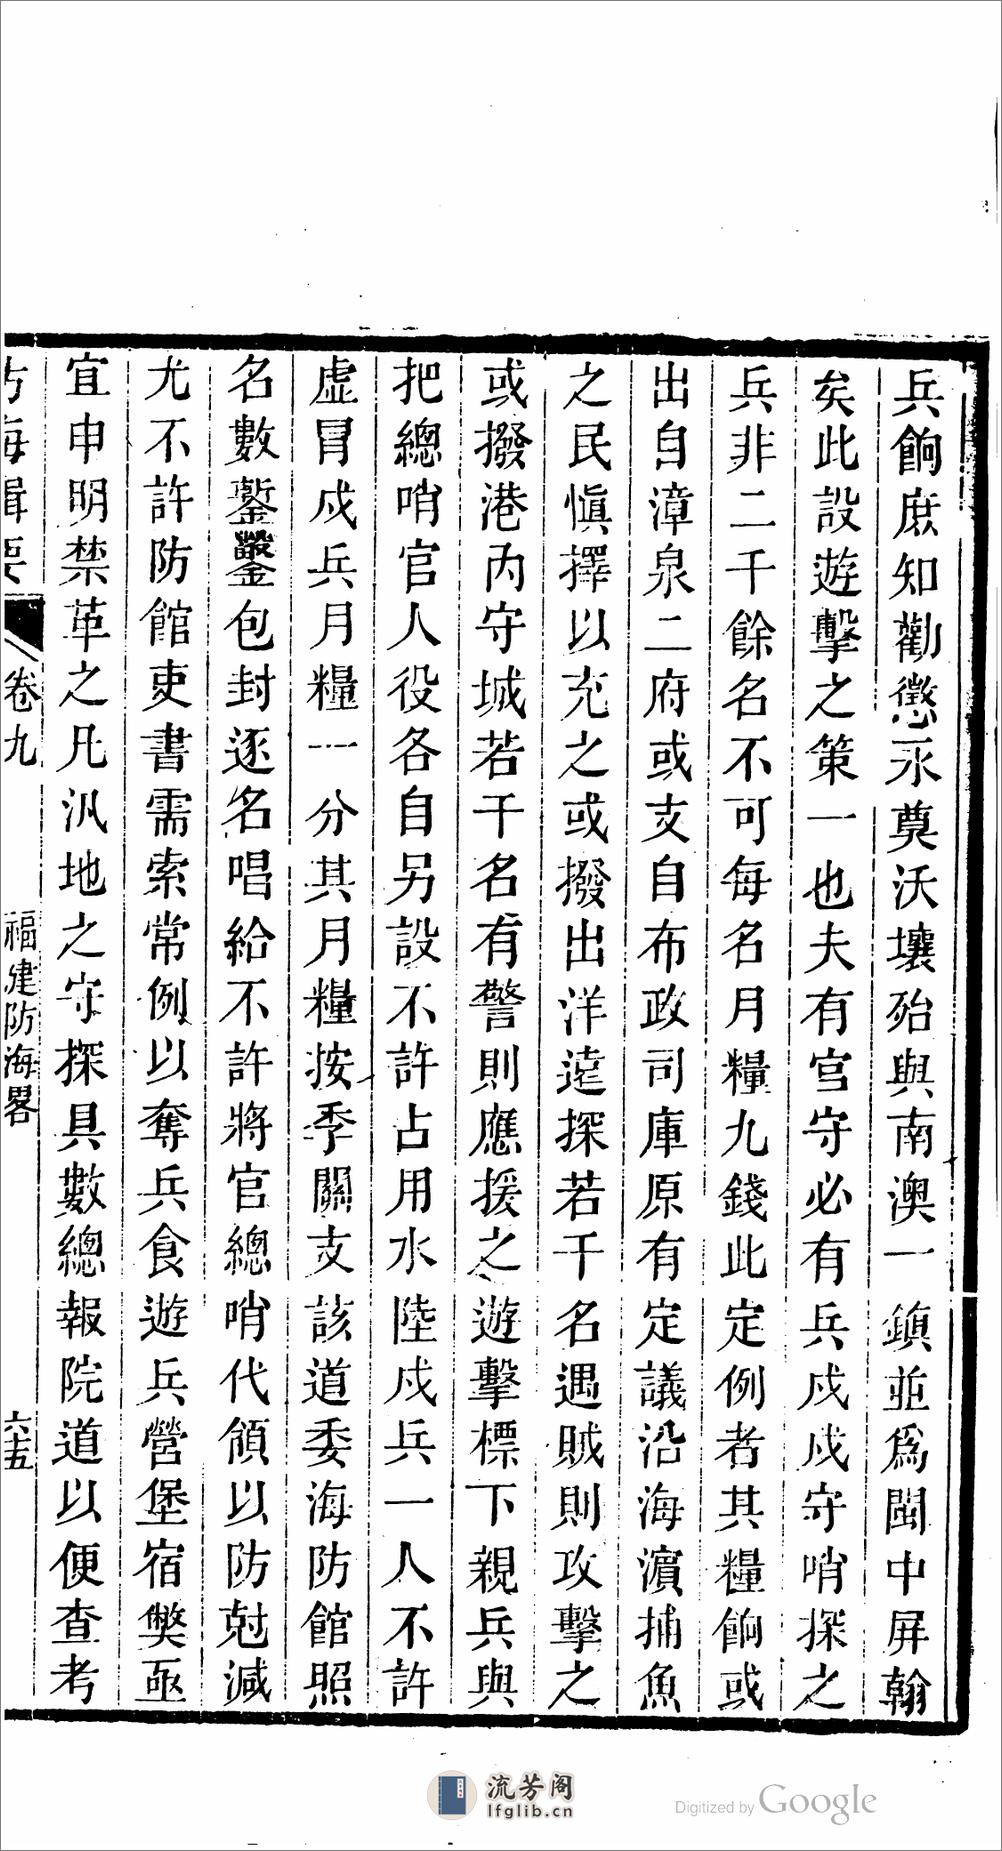 兵餉庶知勸懲永奠沃壤殆與南澳一鎮並爲閩中屏翰
矣此設遊擊之策一也夫有官守必有兵戍戍守哨探之
兵非二千餘名不可每名月糧九錢此定例者其糧餉或
出自漳泉二府或支自布政司庫原有定議沿海濵捕魚
之民愼擇以充之或撥出洋遠探若千名遇賊則攻擊之
或撥港內守城若干名有警則應援之遊擊標下親兵與
把總哨官人役各自另設不許占用水陸戍兵一人不許
虛冒戍兵月糧一分其月糧按季關支該道委海防館照
名數鏨鑿包封逐名唱給不許將官總哨代領以防尅減
尤不許防館吏書需索常例以奪兵食遊兵營堡宿獘亟
宜申明禁革之凡汛地之守探具數總報院道以便查考
防海輯要
卷九
福建防海畧
六五
流芳阁
lfglib.cn
Digitized by Google